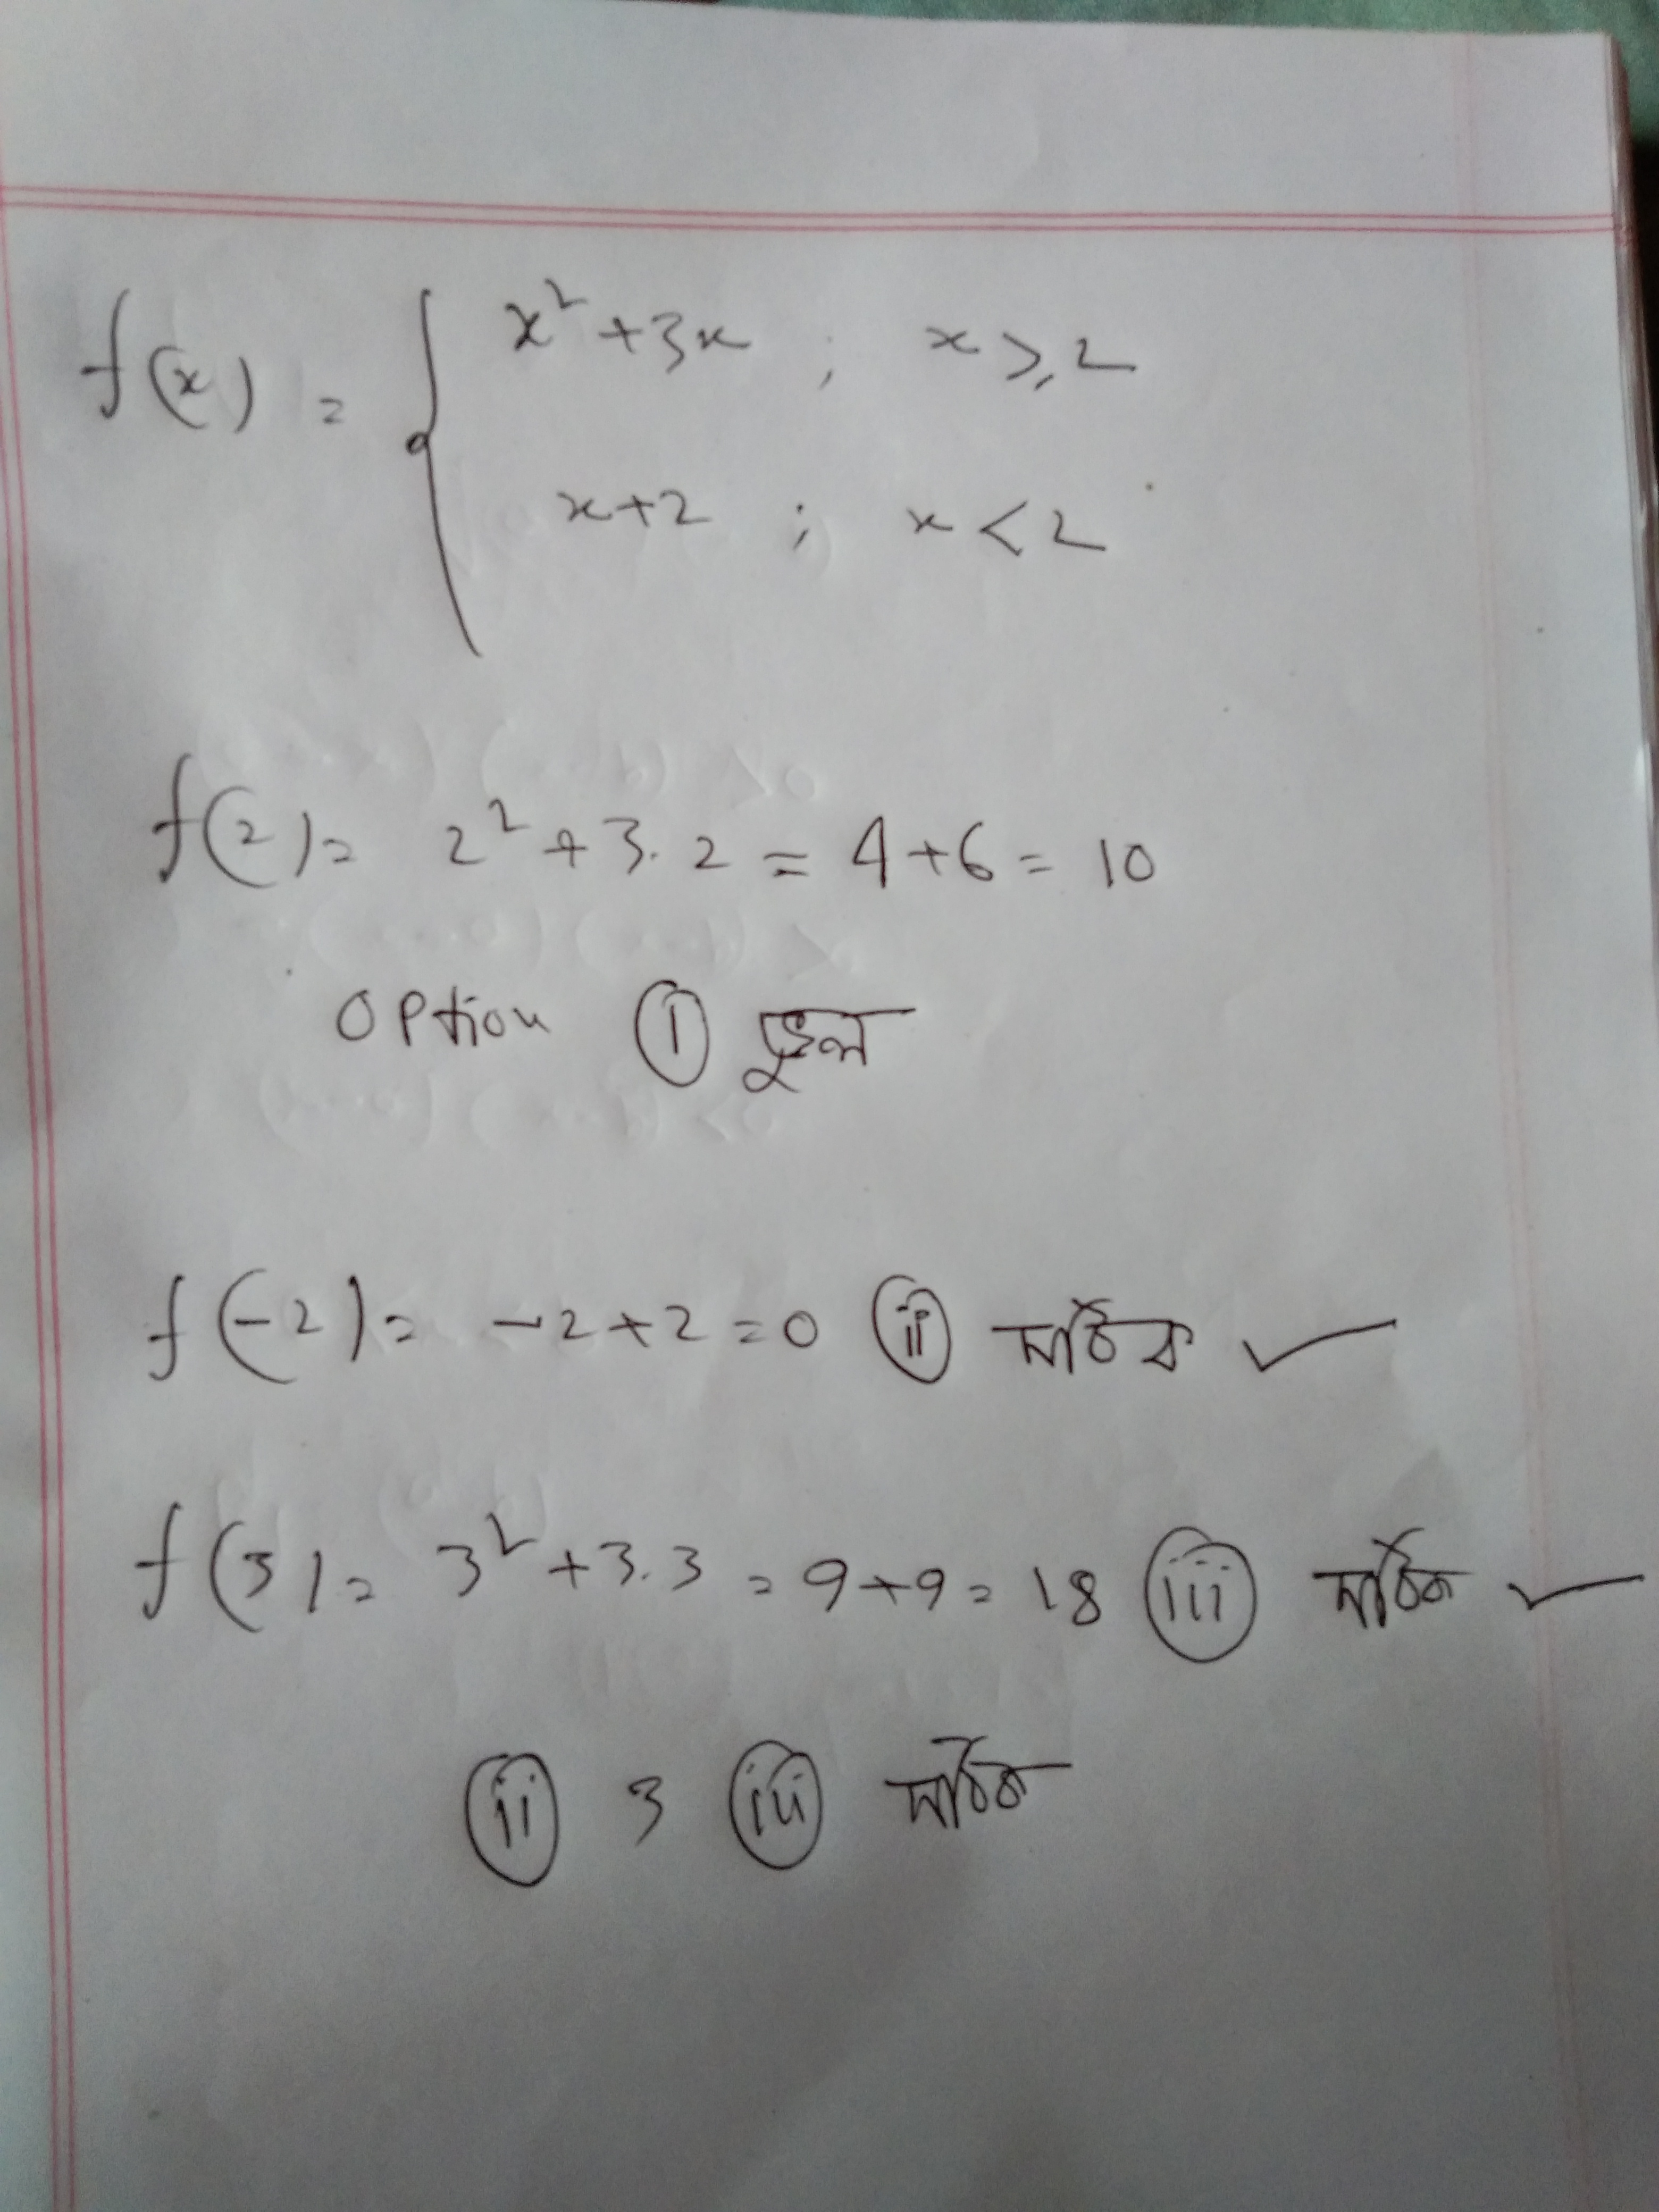 f(x) = { x² + 3x ; x ≥ 2
x + 2 ; x < 2
f(2) = 2² + 3.2 = 4 + 6 = 10
Option (i) ভুল
f(-2) = -2 + 2 = 0 (ii) সঠিক ✓
f(3) = 3² + 3.3 = 9 + 9 = 18 (iii) সঠিক ✓
(ii) ও (iii) সঠিক